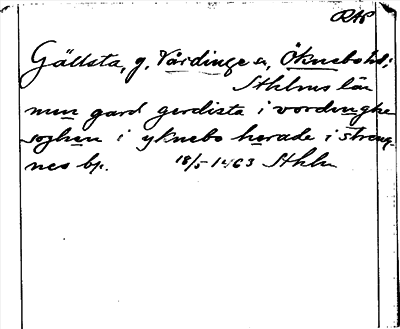 RAP
Gällsta, g, Vårdinge sn, Öknebo hd;
Sthlms län
min gard gerdista i vordinghe
soghen i yknebo herade i streng-
nes bp. 18/5 1463 Sthlm